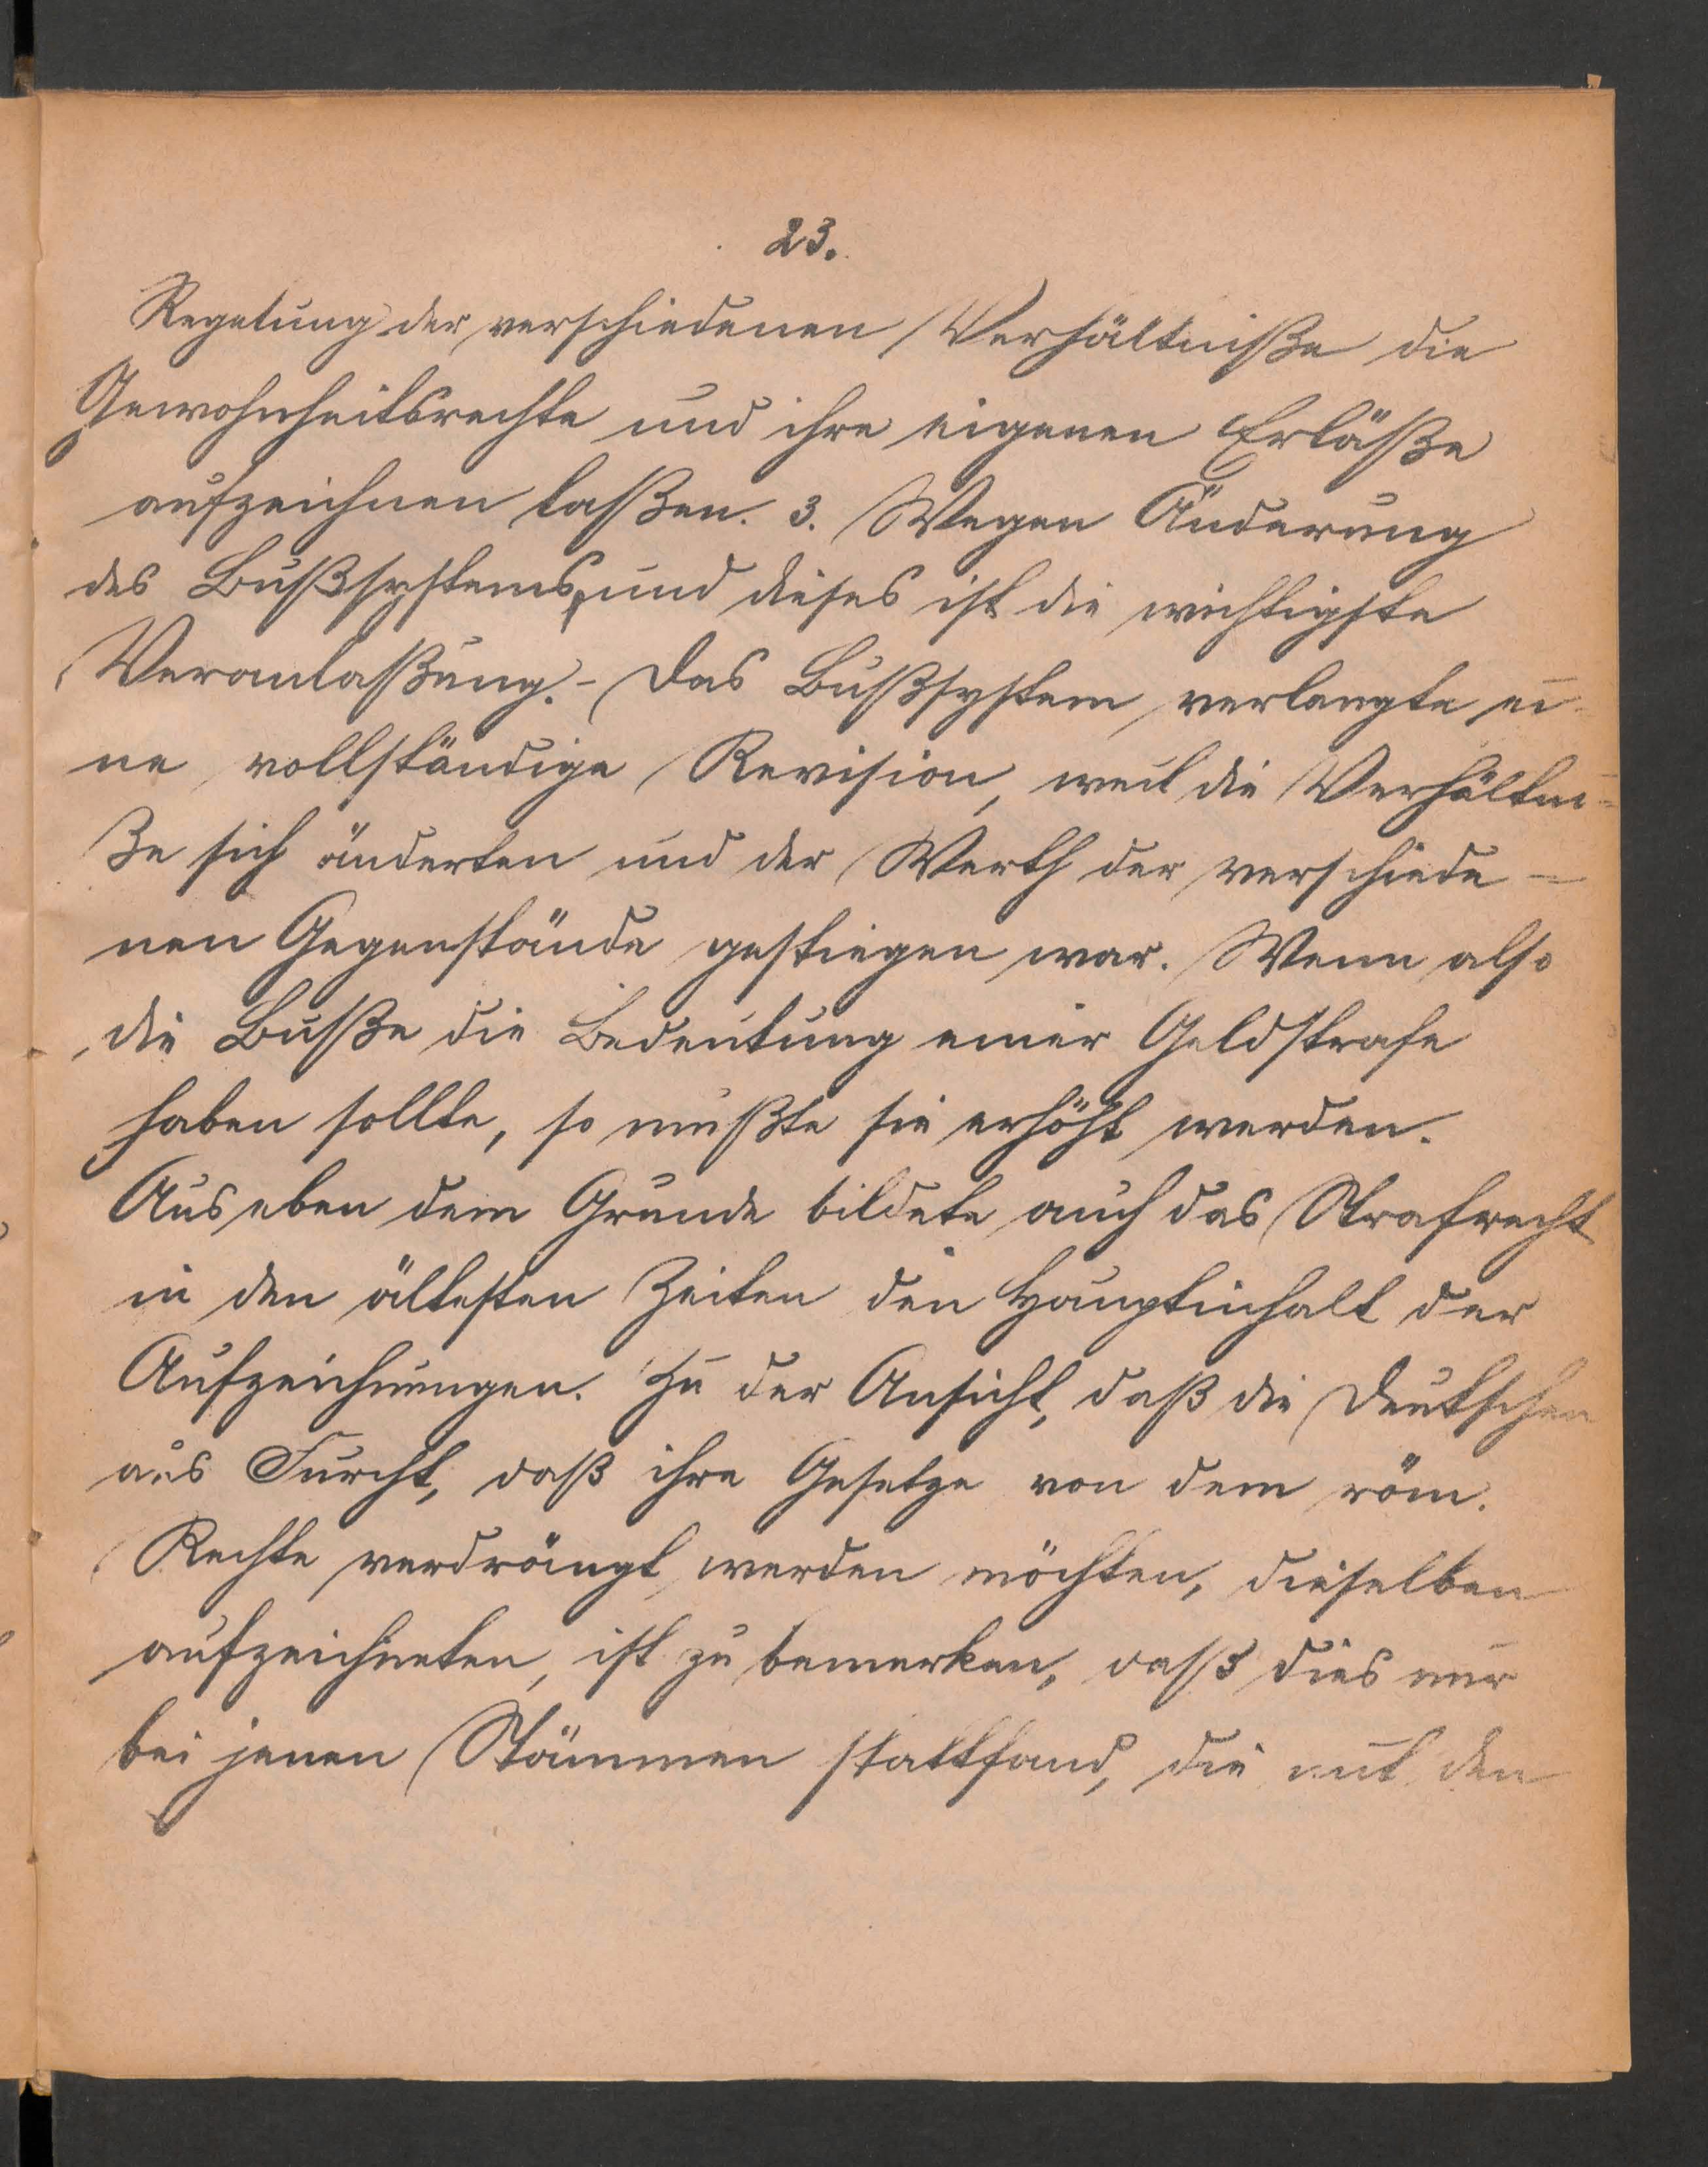 23.
Regelung der verschiedenen Verhältniße die
Gewohnheitsrechte und ihre eigenen Erläße
aufzeichnen laßen. 3. Wegen Änderung
des Bußsystems, und dieses ist die wichtigste
Veranlaßung. - Das Bußsystem verlangte ei-
ne vollständige Revision, weil die Verhältni=
ße sich änderten und der Werth der verschiede=
nen Gegenstände gestiegen war. Wenn also
die Buße die Bedeutung einer Geldstrafe
haben sollte, so mußte sie erhöht werden.
Aus eben dem Grunde bildete auch das Strafrecht
in den ältesten Zeiten den Hauptinhalt der
Aufzeichnungen. Zu der Ansicht, daß die Deutschen
aus Furcht, daß ihre Gesetze von dem röm.
Rechte verdrängt werden möchten, dieselben
aufzeichneten, ist zu bemerken, daß dies nur
bei jenen Stämmen stattfand, die mit den